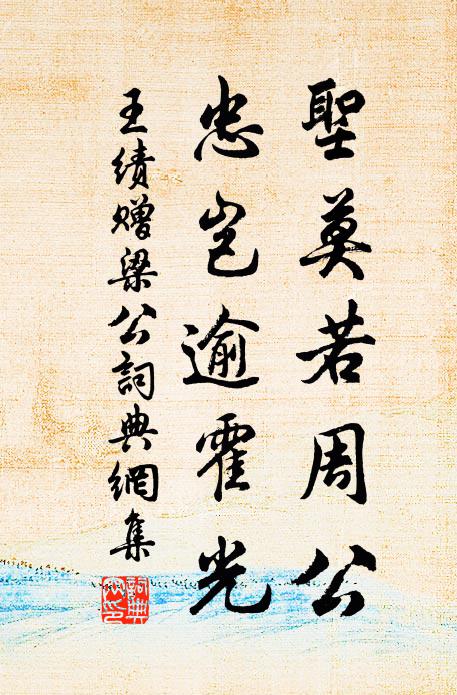 聖莫若周公
忠豈逾霍光
王績贈梁公詞典網集